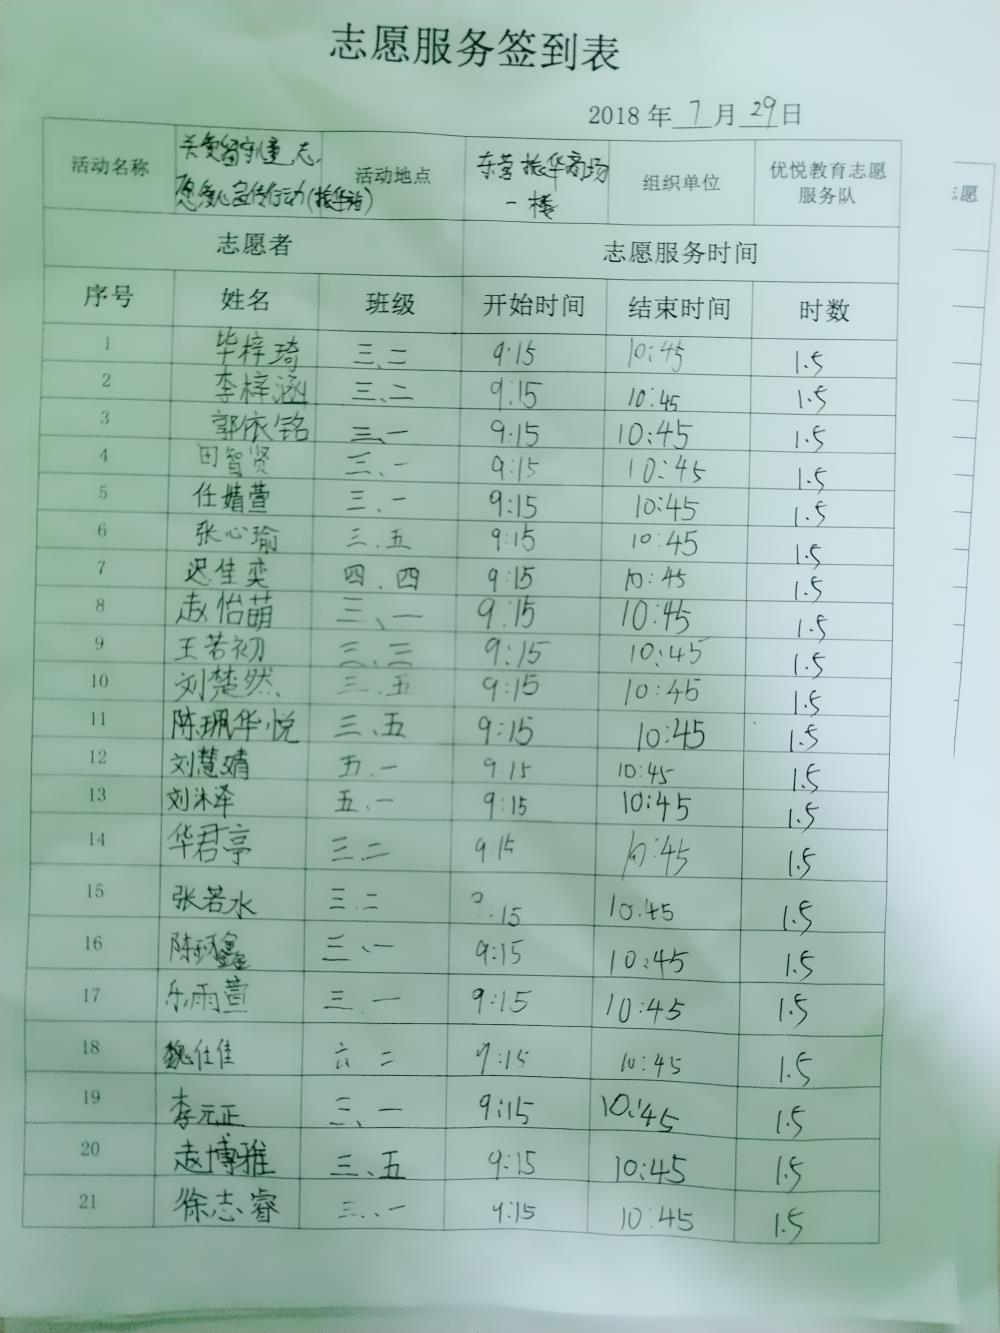 志愿服务签到表
2018 年 7 月 29 日
活动名称 关爱留守儿童志愿爱心宣传行动(振华站) 活动地点 东营振华商场一楼 组织单位 优悦教育志愿服务队
志愿者 志愿服务时间
序号 姓名 班级 开始时间 结束时间 时数
1 毕梓琦 三、二 9:15 10:45 1.5
2 李梓涵 三、二 9:15 10:45 1.5
3 郭依铭 三、一 9:15 10:45 1.5
4 田智贤 三、一 9:15 10:45 1.5
5 任婧萱 三、一 9:15 10:45 1.5
6 张心瑜 三、五 9:15 10:45 1.5
7 迟佳奕 四、四 9:15 10:45 1.5
8 赵怡萌 三、一 9:15 10:45 1.5
9 王若初 三、三 9:15 10:45 1.5
10 刘楚然 三、五 9:15 10:45 1.5
11 陈珮华悦 三、五 9:15 10:45 1.5
12 刘慧婧 五.一 9 15 10:45 1.5
13 刘沐泽 五.一 9:15 10:45 1.5
14 华君亭 三.二 9.15 10:45 1.5
15 张若水 三.二 9:15 10:45 1.5
16 陈珂鑫 三、一 9:15 10:45 1.5
17 乐雨萱 三.一 9:15 10:45 1.5
18 魏仕佳 六 二 9:15 10:45 1.5
19 李元正 三、一 9:15 10:45 1.5
20 赵博雅 三、五 9:15 10:45 1.5
21 徐志睿 三、一 9:15 10:45 1.5
志愿